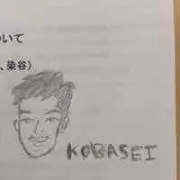 ついて
、染谷)
KOBASEI